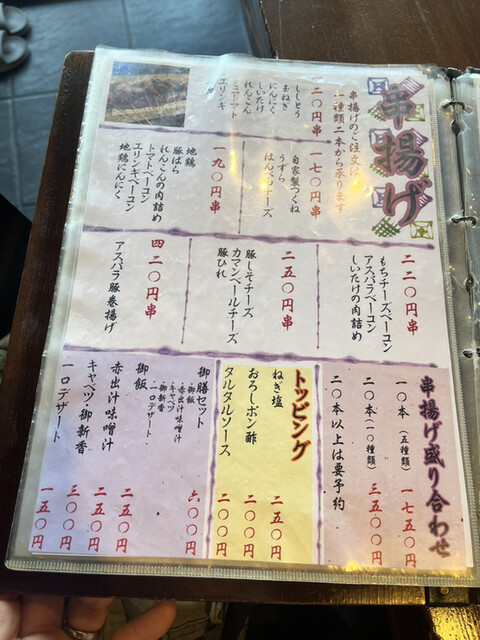 串揚げ
串揚げのご注文は
一種類二本から承ります
一二〇円串
ししとう
玉ねぎ
にんにく
しいたけ
れんこん
ミニトマト
エリンギ
一七〇円串
自家製つくね
うずら
はんぺんチーズ
一九〇円串
地鶏
豚ばら
れんこんの肉詰め
トマトベーコン
エリンギベーコン
地鶏にんにく
二二〇円串
もちチーズベーコン
アスパラベーコン
しいたけの肉詰め
二五〇円串
豚しそチーズ
カマンベールチーズ
豚ひれ
四二〇円串
アスパラ豚巻揚げ
串揚げ盛り合わせ
一〇本(五種類) 一七五〇円
二〇本(一〇種類) 三五〇〇円
二〇本以上は要予約
トッピング
ねぎ塩 二五〇円
おろしポン酢 二〇〇円
タルタルソース 二〇〇円
御膳セット 六〇〇円
・御飯
・赤出汁味噌汁
・キャベツ
・御新香
・一口デザート
御飯 二五〇円
赤出汁味噌汁 二五〇円
キャベツ・御新香 三〇〇円
一口デザート 一五〇円